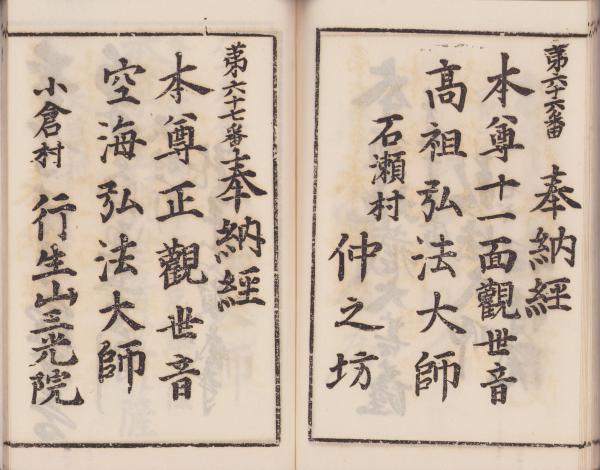 第六十六番 奉納經
本尊十一面觀世音
高祖弘法大師
石瀬村 仲之坊
第六十七番 奉納經
本尊正觀世音
空海弘法大師
小倉村 行生山三光院